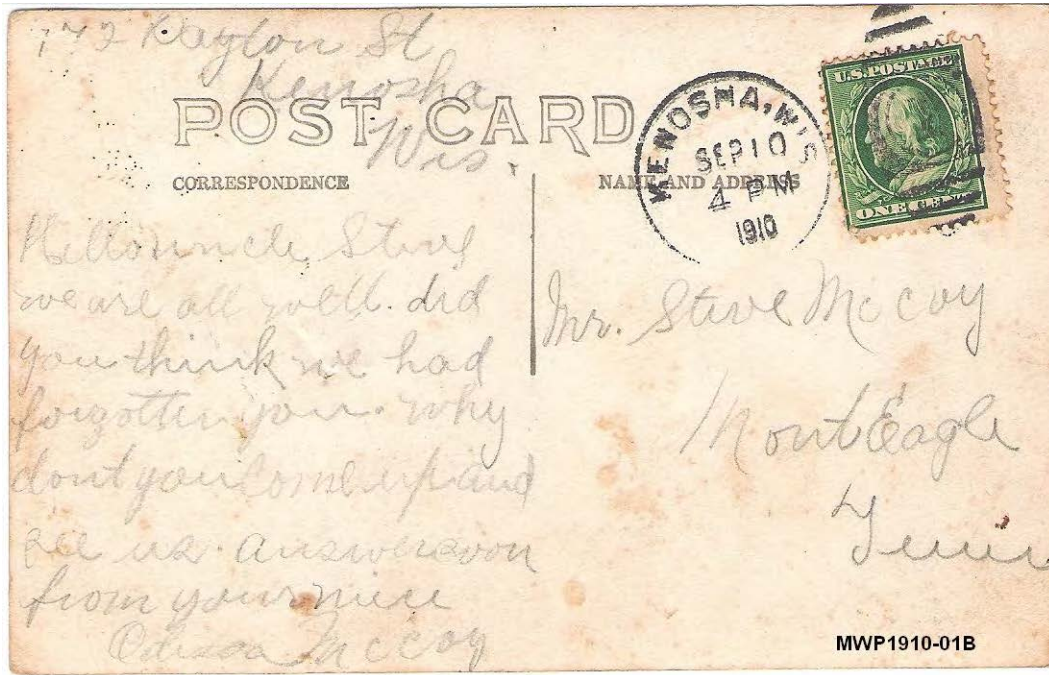 172 St
Kenosha
Wis.
POST CARD
CORRESPONDENCE
NAME AND ADDRESS
KENOSHA, WIS
SEP 10
4 PM
1910
U.S. POSTAGE
ONE CENT
Hello uncle Steve
we are all well. did
you think we had
forgotten you. why
dont you come up and
see us. answer soon
from your niece
McCoy
Mr. Steve McCoy
MontEagle
Tenn
MWP1910-01B